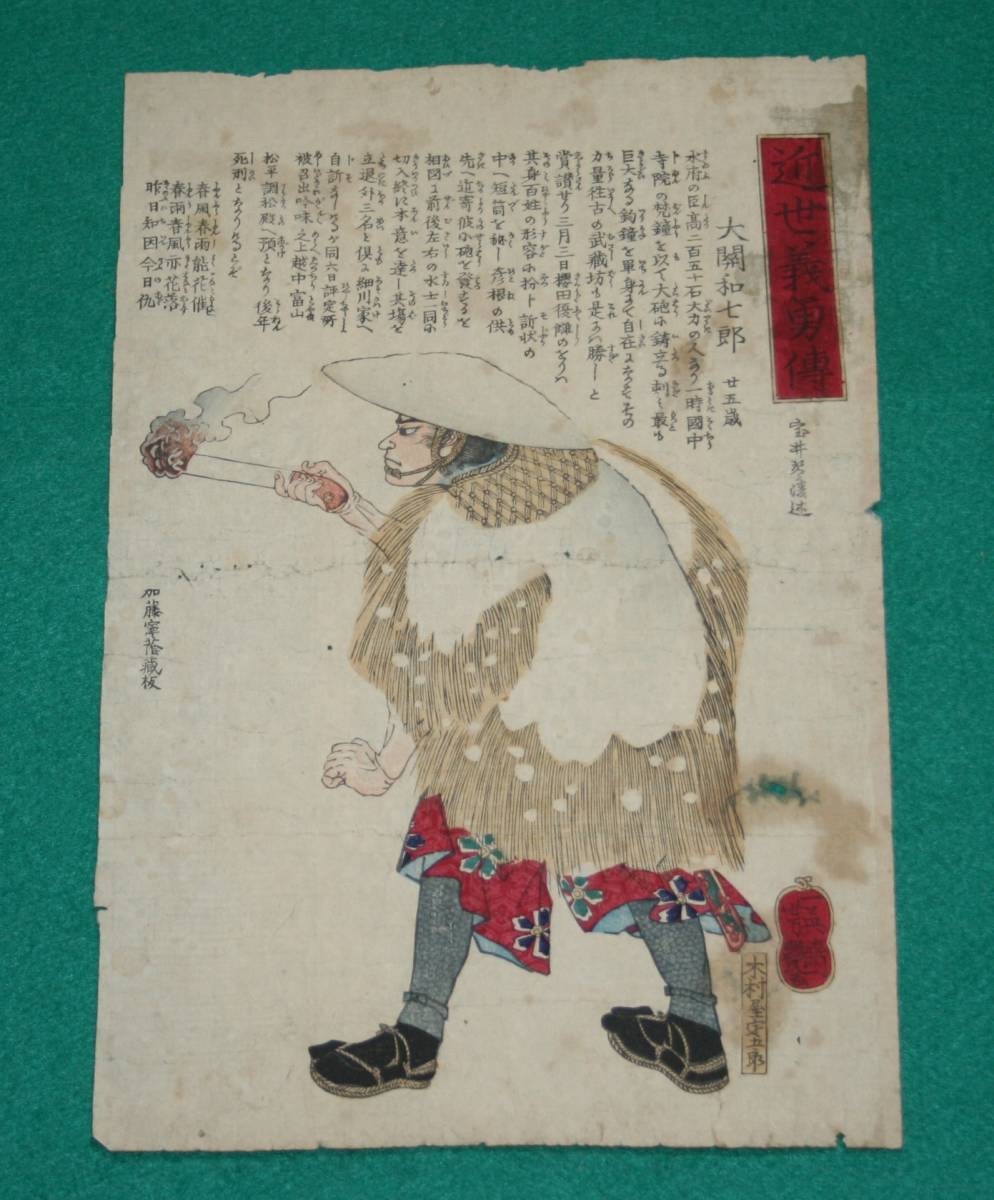 近世義勇傳
宝井琴凌述
大關和七郎 廿五歳
水府の臣高二百五十石大力の人なり一時國中
寺院の梵鐘を以て大砲に鋳立る刺し最も
巨大なる釣鐘を單身まて自在になせそ其の
力量往古の武蔵坊も是れに勝しと
賞讃せり三月三日櫻田侵雛のをりハ
其身百姓の形容に扮し訴状の
中へ短筒を 彦根の供
先へ近寄彼小砲を發するを
相図に前後左右の水士一同に
切入終に本意を達し其場を
立退外三名と倶に細川家へ
自訴なしけるが同六日評定所
被召出吟味之上越中富山
松平調松殿へ預となり後年
死刑となりけるとぞ
春風春雨能花催
春雨春風亦花落
昨日知因今日仇
加藤寧蔭蔵板
一
木村屋定五郎